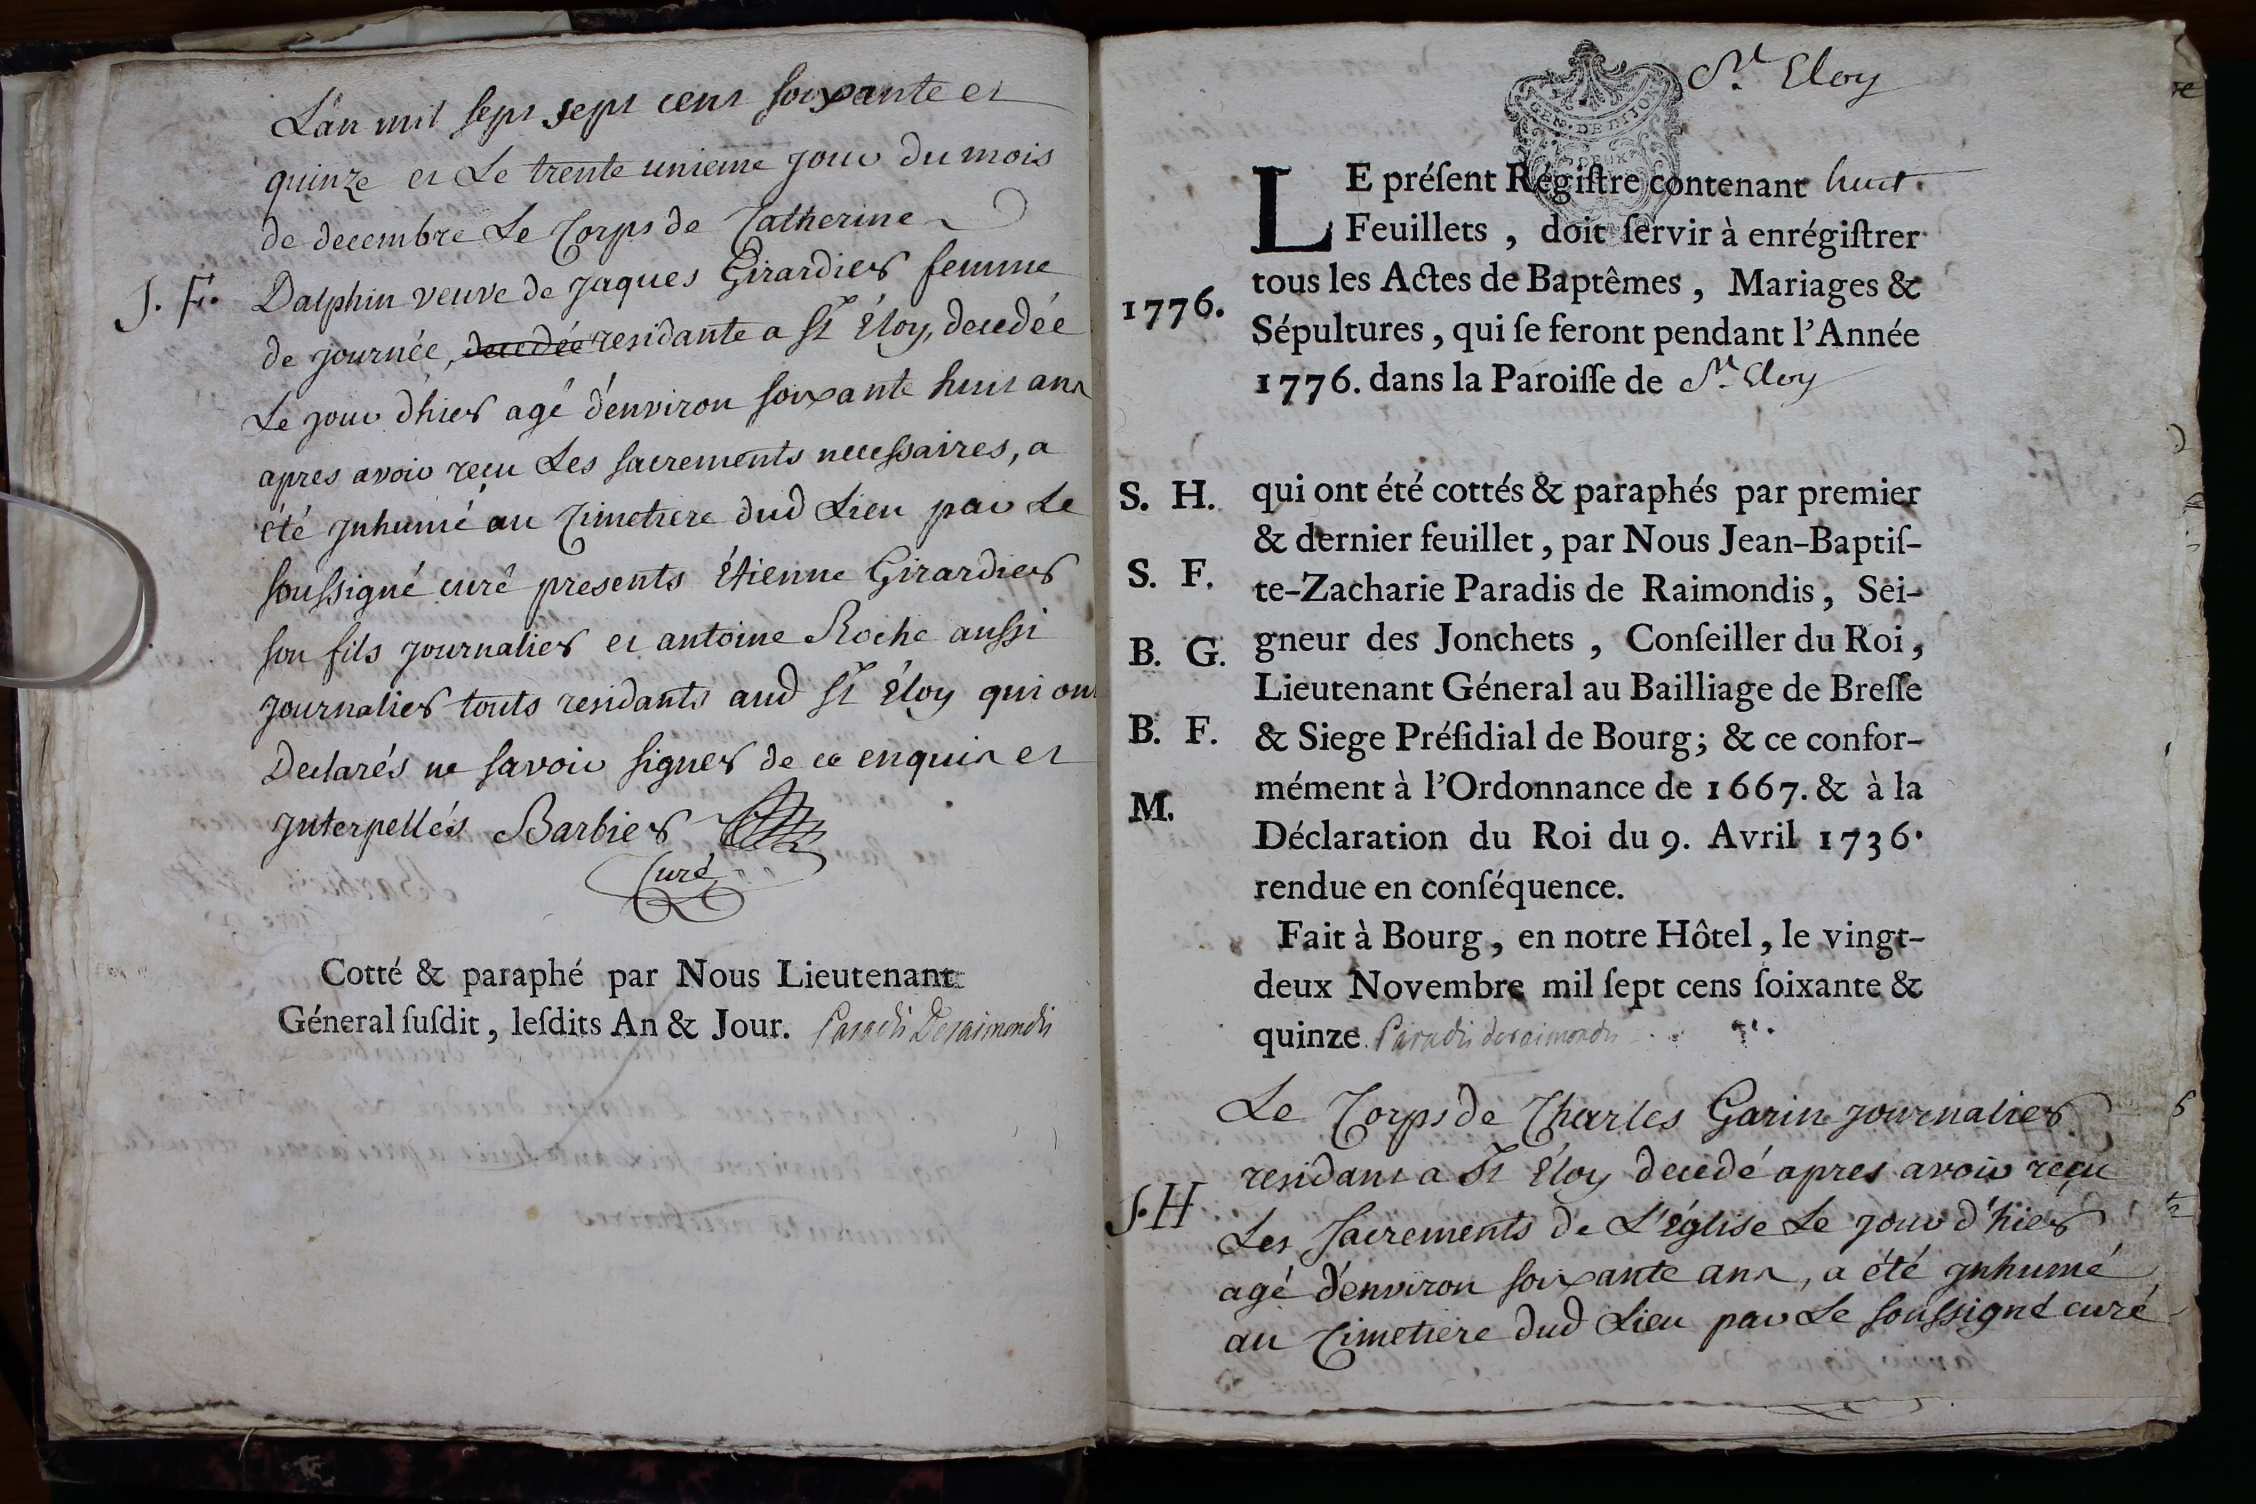 L'an mil sept sept cent soixante et
quinze et Le trente unieme jour du mois
de decembre Le Corps de Catherine
S. F. Dalphin veuve de Jaques Girardier femme
de journée, decedée residante a St Éloy, decedée
Le jour d'hier agé d'environ soixante huit ans
apres avoir reçu Les sacrements necessaires, a
été inhumé au Cimetiere dud Lieu par Le
soussigné curé presents Étienne Girardier
son fils journalier et antoine Roche aussi
journalier touts residants aud St Éloy qui ont
Declarés ne savoir signer de ce enquis et
interpellés Barbier
Curé
Cotté & paraphé par Nous Lieutenant
Géneral ſuſdit, leſdits An & Jour. Paradis Deraimondis
St. Eloy
GEN. DE DIJON
DEUX
LE préſent Régiſtre contenant huit
Feuillets, doit ſervir à enrégiſtrer
tous les Actes de Baptêmes, Mariages &
1776. Sépultures, qui ſe feront pendant l'Année
1776. dans la Paroiſſe de St. Eloy
S. H. qui ont été cottés & paraphés par premier
& dernier feuillet, par Nous Jean-Baptiſ-
S. F. te-Zacharie Paradis de Raimondis, Sei-
B. G. gneur des Jonchets, Conſeiller du Roi,
Lieutenant Géneral au Bailliage de Breſſe
B. F. & Siege Préſidial de Bourg; & ce confor-
mément à l'Ordonnance de 1667. & à la
M. Déclaration du Roi du 9. Avril 1736.
rendue en conſéquence.
Fait à Bourg, en notre Hôtel, le vingt-
deux Novembre mil ſept cens ſoixante &
quinze. Paradis deraimondis
Le Corps de Charles Garin journalier
residant a St Éloy decedé apres avoir reçu
S.H Les Sacrements de L'église Le jour d'hier
agé d'environ soixante ans, a été inhumé
au Cimetiere dud Lieu par Le soussigné curé